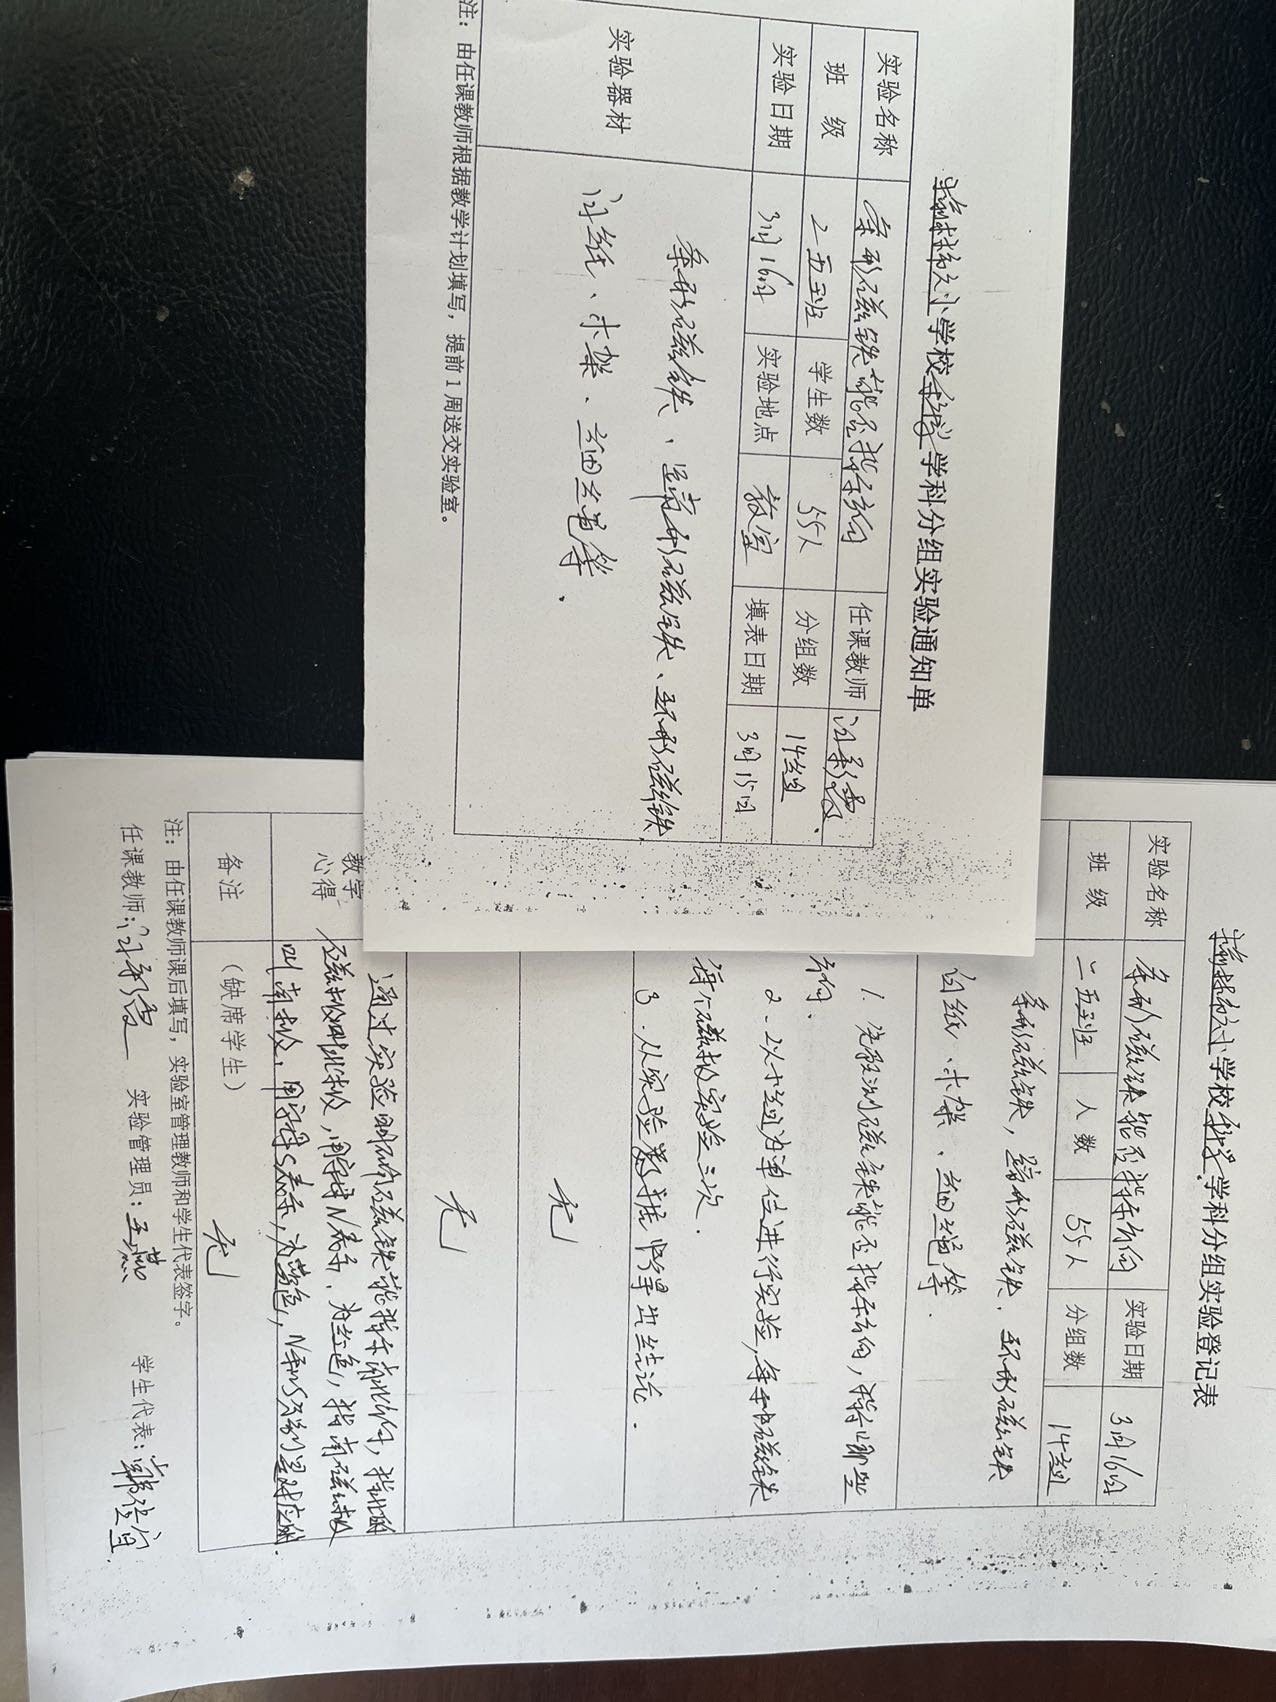 小学校科学学科分组实验通知单
实验名称 条形磁铁能否指示方向 任课教师
班 级 二五班 学生数 55人 分组数 14组
实验日期 3月16日 实验地点 教室 填表日期 3月15日
实验器材
条形磁铁、蹄形磁铁、环形磁铁
白纸、木架、细线等.
注：由任课教师根据教学计划填写，提前1周送交实验室。
小学校科学学科分组实验登记表
实验名称 条形磁铁能否指示方向 实验日期 3月16日
班 级 二五班 人数 55人 分组数 14组
条形磁铁，蹄形磁铁、环形磁铁
白纸、木架、细线等.
1. 先预测磁铁能否指示方向，指示哪些
方向.
2. 以小组为单位进行实验，每种磁铁
每个磁极实验三次.
3. 从实验数据归纳出结论.
无
无
教学
心得
通过实验明确磁铁能指示南北方向，指北的
磁极叫北极，用字母N表示，为红色，指南磁极
叫南极，用字母S表示，为蓝色，N和S分别是对应的.
备注 （缺席学生） 无
注：由任课教师课后填写，实验室管理教师和学生代表签字。
任课教师： 实验管理员：王燕 学生代表：